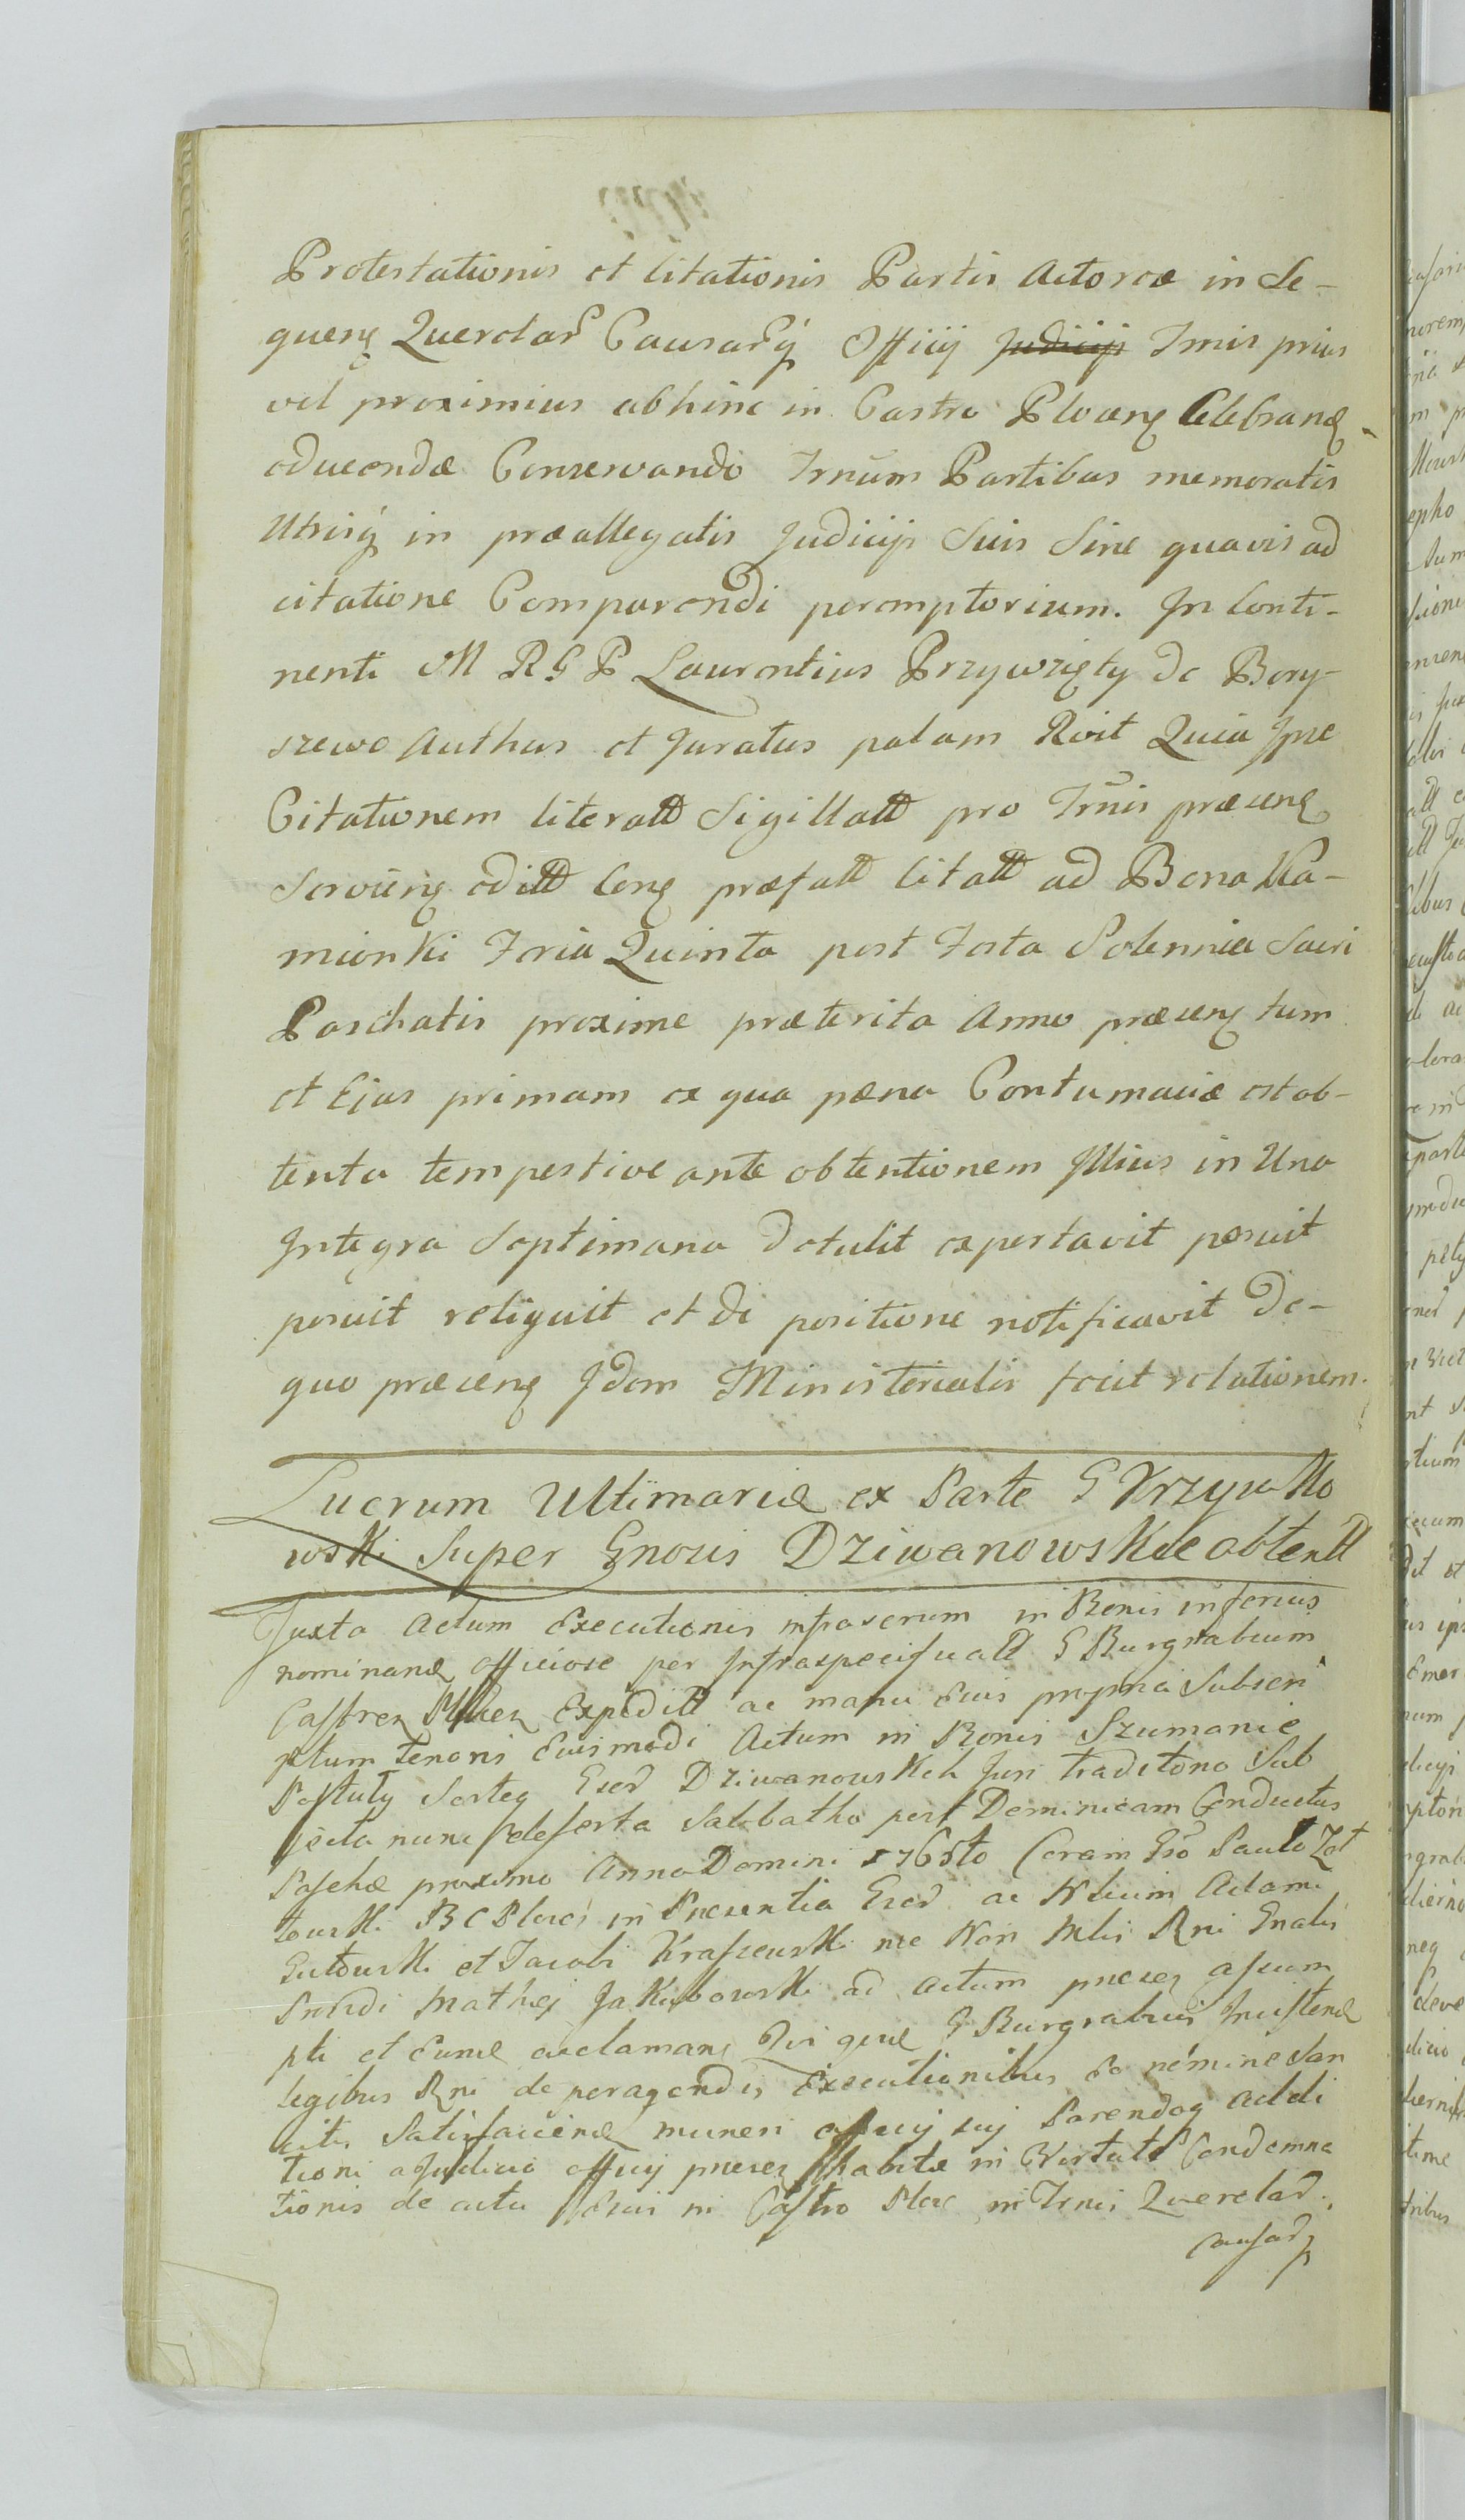 Protestationis et Citationis Partis Actoreæ in Se-
quenȝ Querelar Causarq́ Officij Judicijs Tmis prius
vel proximius abhinc in Castro Plocenȝ Celebranȝ
educendæ Conservando Trnūm Partibus memoratis
Utrisq́ in præallegatis Judicijs Suis Sine quavis ad
citatione Comparendi peremptorium. In Conti-
nenti M R G P Laurentius Przywzięty de Bory-
szewo Authus et Juratus palam Rvit Quia Ipse
Citationem literatt Sigillatt pro Trñis præsenȝ
Servienȝ editt Conȝ præfatt Citatt ad Bona Ka-
mionki Feria Quinta post Festa Solennia Sacri
Paschatis proxime præterita Anno præsenȝ tum
et Ejus primam ex qua pæna Contumaciæ est ob-
tenta tempestive ante obtentionem Illius in Una
Integra Septimana detulit expertavit posuit
posuit reliquit et de positione notificavit De-
quo præsenȝ Idem Ministerialis fecit relationem.
Lucrum Ultimariæ ex Parte G Krzywko
wski Super Gnosis Dziwanowskie obtentt
Juxta Actum Executionis infrascrum in Bonis inferius
nominanȝ officiose per Infraspecificatt G Burgrabium
Castrenȝ Plocenȝ Expeditt ac manu Ejus propria Subscri
ptum tenoris Ejusmodi Actum in Bonis Szumanie
Pustuły Sorteȝ Gser Dziwanowskich Juri traditono Sub
jecta nunc Sdeserta Sabbatho post Dominicam Conductus
Paschæ proximo Anno Domini 1765to Coram Gso Paulo Zot
towski B C Plocen in Præsentia Gser ac Nlium Adami
Gutowski et Jacobi Kraszewski nec Non Mlis Rni Gnalis
Prvidi Mathej Jakubowski ad actum præsenȝ assum
pti et Eunde acclamanȝ Qui quæ G Burgrabius Insistendȝ
legibus Rni de peragendis Executionibus Eo nomine San
citis Satisfaciendȝ muneri officij sui Parendoq Addi
tioni a Judicio officij præsenȝ habitæ in Virtute Condemna
tionis de actu Sdesui in Castro Ploc in Trmis Querelar.
causarȝ